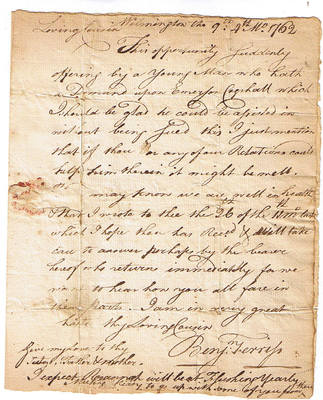 Wilmington the 9th 4th Mo. 1762
Loving Cousin
This opportunity Suddenly
offering by a Young Man who hath
a Demand upon Emerson Cogshall which
I should be glad he could be assisted in
without being Sued this I just mention
that if thee or any of our Relations could
help him therein it might be well.
may know we are well in health
that I wrote to thee the 26th of the
which I hope thee has Recd & will take
care to answer perhaps by the bearer
hereof who returns immediately for we
want to hear how you all fare in
these parts. I am in very great
haste thy Loving Cousin
Benjn Ferriss
Give my love to thy
Sister & Mother.
I expect Hannah will be at Flushing Yearly
ready to go up with some of you from